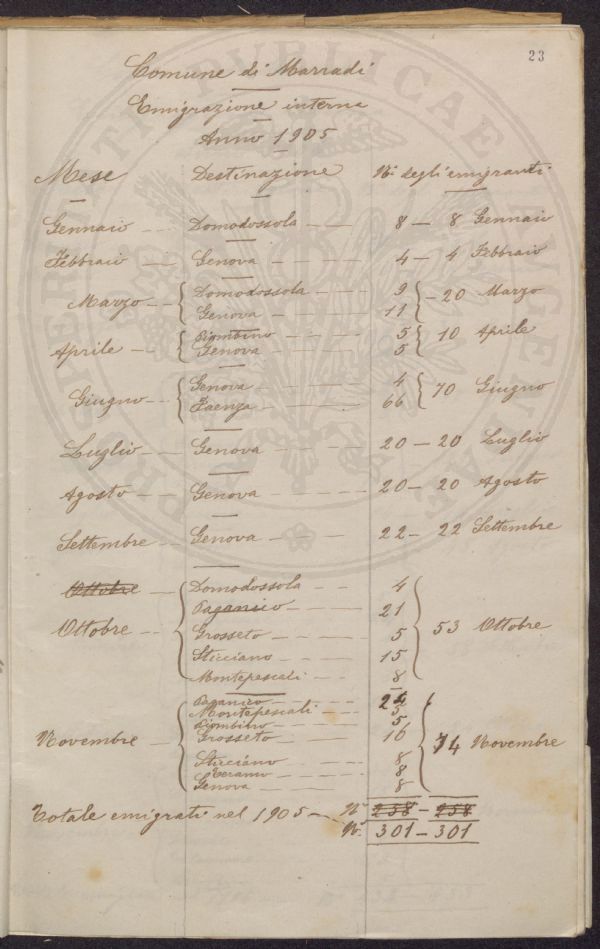 23
Comune di Marradi
Emigrazione interna
Anno 1905
Mese Destinazione Nº degli emigranti
Gennaio Domodossola 8 — 8 Gennaio
Febbraio Genova 4 — 4 Febbraio
Marzo Domodossola 9 — 20 Marzo
Genova 11
Aprile Piombino 5 10 Aprile
Genova 5
Giugno Genova 4 70 Giugno
Faenza 66
Luglio Genova 20 — 20 Luglio
Agosto Genova 20 — 20 Agosto
Settembre Genova 22 — 22 Settembre
Ottobre Domodossola 4
Paganico 21
Ottobre Grosseto 5 53 Ottobre
Sticciano 15
Montepescali 8
Paganico 24
Montepescali 5
Piombino 5
Novembre Grosseto 16 74 Novembre
Sticciano 8
8
Genova 8
Totale emigrati nel 1905 — Nº 258 — 258
Nº 301 — 301